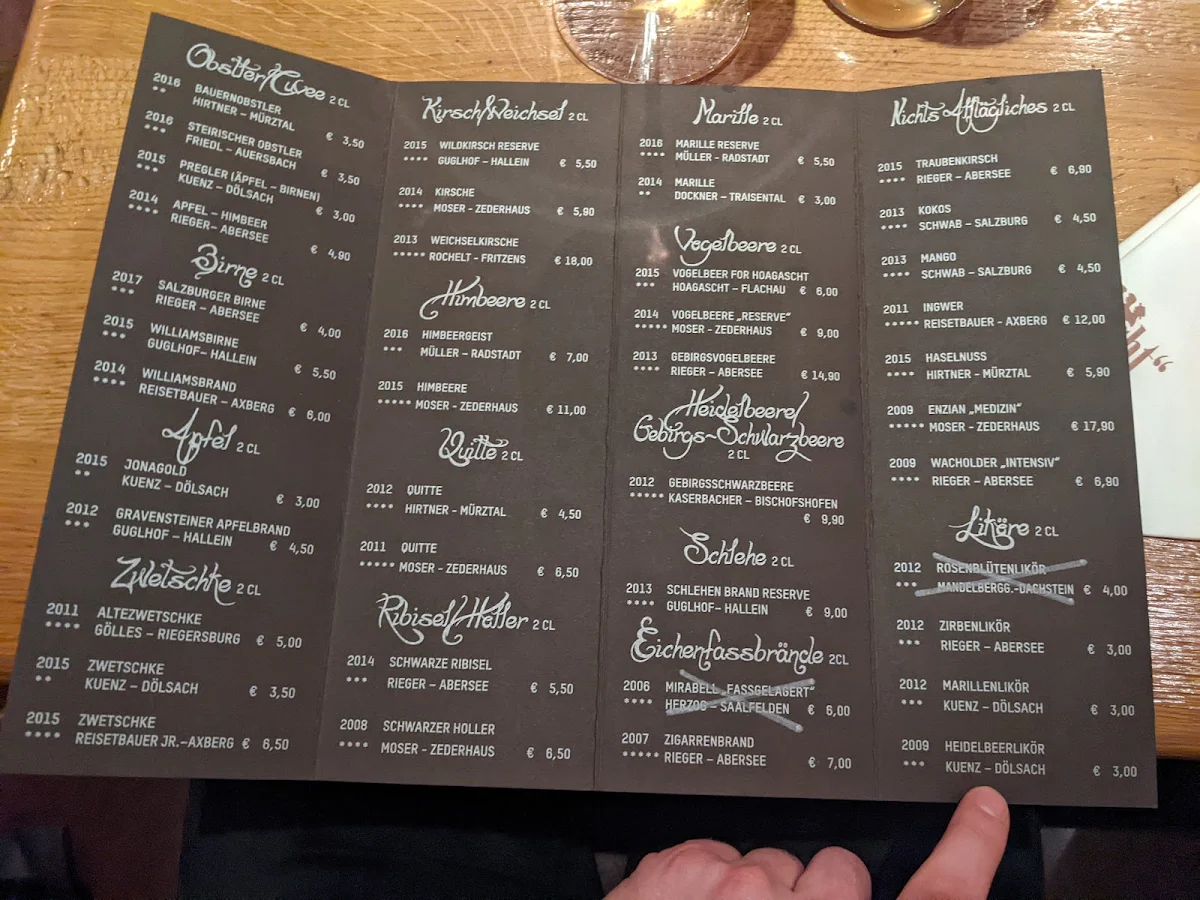 Obstler/Cuvee 2 CL
2016 BAUERNOBSTLER
** HIRTNER – MÜRZTAL € 3,50
2016 STEIRISCHER OBSTLER
*** FRIEDL – AUERSBACH € 3,50
2015 PREGLER (ÄPFEL – BIRNEN)
*** KUENZ – DÖLSACH € 3,00
2014 APFEL – HIMBEER
**** RIEGER– ABERSEE € 4,90
Birne 2 CL
2017 SALZBURGER BIRNE
*** RIEGER – ABERSEE € 4,00
2015 WILLIAMSBIRNE
*** GUGLHOF– HALLEIN € 5,50
2014 WILLIAMSBRAND
**** REISETBAUER – AXBERG € 6,00
Apfel 2 CL
2015 JONAGOLD
** KUENZ – DÖLSACH € 3,00
2012 GRAVENSTEINER APFELBRAND
*** GUGLHOF – HALLEIN € 4,50
Zwetschke 2 CL
2011 ALTEZWETSCHKE
**** GÖLLES – RIEGERSBURG € 5,00
2015 ZWETSCHKE
** KUENZ – DÖLSACH € 3,50
2015 ZWETSCHKE
**** REISETBAUER JR.–AXBERG € 6,50
Kirsch/Weichsel 2 CL
2015 WILDKIRSCH RESERVE
**** GUGLHOF – HALLEIN € 5,50
2014 KIRSCHE
**** MOSER – ZEDERHAUS € 5,90
2013 WEICHSELKIRSCHE
***** ROCHELT – FRITZENS € 18,00
Himbeere 2 CL
2016 HIMBEERGEIST
*** MÜLLER – RADSTADT € 7,00
2015 HIMBEERE
***** MOSER - ZEDERHAUS € 11,00
Quitte 2 CL
2012 QUITTE
**** HIRTNER - MÜRZTAL € 4,50
2011 QUITTE
***** MOSER – ZEDERHAUS € 6,50
Ribisel/Holler 2 CL
2014 SCHWARZE RIBISEL
*** RIEGER – ABERSEE € 5,50
2008 SCHWARZER HOLLER
**** MOSER - ZEDERHAUS € 6,50
Marille 2 CL
2016 MARILLE RESERVE
**** MÜLLER - RADSTADT € 5,50
2014 MARILLE
** DOCKNER – TRAISENTAL € 3,00
Vogelbeere 2 CL
2015 VOGELBEER FOR HOAGASCHT
*** HOAGASCHT – FLACHAU € 6,00
2014 VOGELBEERE „RESERVE“
***** MOSER - ZEDERHAUS € 9,00
2013 GEBIRGSVOGELBEERE
**** RIEGER – ABERSEE € 14,90
Heidelbeere/
Gebirgs-Schwarzbeere
2 CL
2012 GEBIRGSSCHWARZBEERE
***** KASERBACHER – BISCHOFSHOFEN
€ 9,90
Schlehe 2 CL
2013 SCHLEHEN BRAND RESERVE
**** GUGLHOF– HALLEIN € 9,00
Eichenfassbrände 2CL
2006 MIRABELL „FASSGELAGERT“
**** HERZOG – SAALFELDEN € 6,00
2007 ZIGARRENBRAND
***** RIEGER – ABERSEE € 7,00
Nichts Alltägliches 2 CL
2015 TRAUBENKIRSCH
**** RIEGER – ABERSEE € 6,90
2013 KOKOS
**** SCHWAB – SALZBURG € 4,50
2013 MANGO
**** SCHWAB – SALZBURG € 4,50
2011 INGWER
***** REISETBAUER – AXBERG € 12,00
2015 HASELNUSS
**** HIRTNER – MÜRZTAL € 5,90
2009 ENZIAN „MEDIZIN“
***** MOSER – ZEDERHAUS € 17,90
2009 WACHOLDER „INTENSIV“
**** RIEGER – ABERSEE € 6,90
Liköre 2 CL
2012 ROSENBLÜTENLIKÖR
**** MANDELBERGG.-DACHSTEIN € 4,00
2012 ZIRBENLIKÖR
*** RIEGER – ABERSEE € 3,00
2012 MARILLENLIKÖR
*** KUENZ – DÖLSACH € 3,00
2009 HEIDELBEERLIKÖR
*** KUENZ – DÖLSACH € 3,00